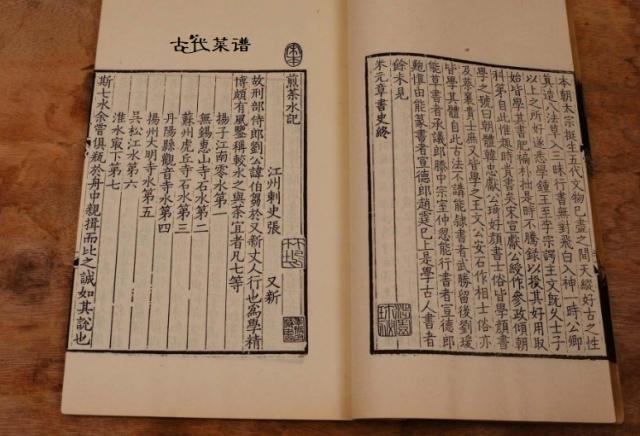 古代菜谱
本朝太宗挺生五代文物已盡之間天縱好古之性
真造八法草入三昧行書無對飛白入神一時公卿
以上之所好遂悉學鍾王至李宗諤主文既久士子
始皆學其書肥褊朴拙是時不謄錄以投其好用取
科第自此惟趣時貴書矣宋宣獻公綬作參政傾朝
學之號曰朝體韓忠獻公琦好顔書士俗皆學顔書
及蔡襄貴士庶又皆學之王文公安石作相士俗亦
皆學其體自此古法不講能隸書者武勝留後劉瑗
能草書者承議郎滕中宗室仲忽能行書者宣德郎
鮑慎由能篆書者宣德郎趙霆已上是學古人書者
餘未見
米元章書史終
煎茶水記
江州刺史張 又新
故刑部侍郎劉公諱伯芻於又新丈人行也為學精
博頗有風鑒稱較水之與茶宜者凡七等
揚子江南零水第一
無錫惠山寺石水第二
蘇州虎丘寺石水第三
丹陽縣觀音寺水第四
揚州大明寺水第五
吳松江水第六
淮水最下第七
斯七水余嘗俱瓶於舟中親揖而比之誠如其說也